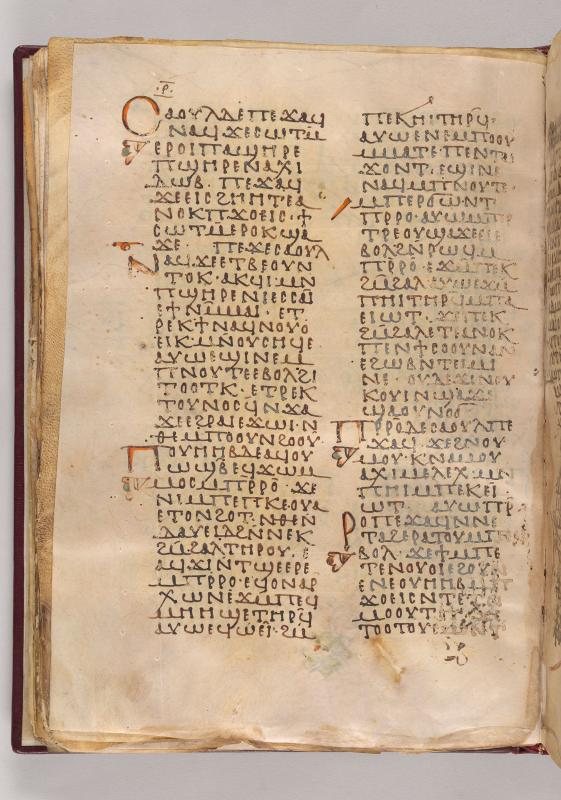 ·ⲣ̄·
ⲥⲁⲟⲩⲗⲇⲉⲡⲉϫⲁϥ
ⲛⲁϥϫⲉⲥⲱⲧⲙ̄
ⲉⲣⲟⲓⲡⲁϣⲏⲣⲉ
ⲡϣⲏⲣⲉⲛⲁⲭⲓ
ⲗⲱⲃ· ⲡⲉϫⲁϥ
ϫⲉⲉⲓⲥϩⲏⲏⲧⲉⲁ
ⲛⲟⲕⲡϫⲟⲉⲓⲥ· ϯ
ⲥⲱⲧⲙⲉⲣⲟⲕϣⲁ
ϫⲉ· ⲡⲉϫⲉⲥⲁⲟⲩⲗ
ⲛⲁϥϫⲉⲉⲧⲃⲉⲟⲩⲛ
ⲧⲟⲕ· ⲁⲕϭⲓⲙⲛ
ⲡϣⲏⲣⲉⲛⲓⲉⲥⲥⲁⲓ
ⲉϯⲛⲙⲙⲁⲓ· ⲉⲧ
ⲣⲉⲕϯⲛⲁϥⲛⲟⲩⲟ
ⲉⲓⲕ·ⲙⲛⲟⲩⲥⲏϥⲉ
ⲁⲩⲱⲉϣⲓⲛⲉⲙ
ⲡⲛⲟⲩⲧⲉⲉⲃⲟⲗϩⲓ
ⲧⲟⲟⲧⲕ· ⲉⲧⲣⲉⲕ
ⲧⲟⲩⲛⲟⲥϥⲛϫⲁ
ϫⲉⲉϩⲣⲁⲓⲉϫⲱⲓ·ⲛ
ⲑⲉⲙⲡⲟⲟⲩⲛϩⲟⲟⲩ·
ⲡⲟⲩⲏⲏⲃⲇⲉⲁϥⲟⲩ
ⲱϣⲃⲉϥϫⲱⲙ
ⲙⲟⲥⲙⲡⲣⲣⲟ·ϫⲉ
ⲛⲓⲙⲡⲉⲧⲕⲉⲟⲩⲁ
ⲉⲧⲟⲛϩⲟⲧ·ⲛⲑⲉⲛ
ⲇⲁⲩⲉⲓⲇϩⲛⲛⲉⲕ
ϩⲙϩⲁⲗⲧⲏⲣⲟⲩ·ⲉ
ⲁϥϫⲓⲛⲧϣⲉⲉⲣⲉ
ⲙⲡⲣⲣⲟ·ⲉϥⲟⲛⲁⲣ
ⲭⲱⲛⲉϫⲙⲡⲉϥ
ⲙⲏⲏϣⲉⲧⲏⲣϥ
ⲁⲩⲱⲉϥⲱⲉⲓ·ϩⲙ
ⲡⲉⲕⲏⲓⲧⲏⲣϥ·
ⲁⲩⲱⲉⲛⲉⲙⲡⲟⲟⲩ
ⲙⲙⲁⲧⲉ·ⲡⲉⲛⲧⲁⲓ
ϫⲟⲛⲧ·ⲉϣⲓⲛⲉ
ⲛⲁϥⲙⲡⲛⲟⲩⲧⲉ·
ⲙⲡⲉⲣϭⲱⲛⲧ·
ⲡⲣⲣⲟ·ⲁⲩⲱⲙⲡⲣ
ⲧⲣⲉⲟⲩϣⲁϫⲉⲉⲓⲉ
ⲃⲟⲗϩⲛⲣⲱϥⲙ
ⲡⲣⲣⲟ·ⲉϫⲙⲡⲉⲕ
ϩⲙϩⲁⲗ·ⲁⲩⲱⲉϫⲙ
ⲡⲏⲓⲧⲏⲣϥⲙⲡⲁ
ⲉⲓⲱⲧ·ϫⲉⲡⲉⲕ
ϩⲙϩⲁⲗⲉⲧⲉⲁⲛⲟⲕ
ⲡⲉⲛϯⲥⲟⲟⲩⲛⲁⲛ
ⲉϩⲱⲃⲛⲧⲉⲓⲙⲓ
ⲛⲉ·ⲟⲩⲇⲉϫⲓⲛⲟⲩ
ⲕⲟⲩⲓⲛϣⲁϫⲉ
ϣⲁⲟⲩⲛⲟϭ
ⲡⲣⲣⲟⲇⲉⲥⲁⲟⲩⲗⲡⲉ
ϫⲁϥ·ϫⲉϩⲛⲟⲩ
ⲙⲟⲩ·ⲕⲛⲁⲙⲟⲩ
ⲁⲭⲓⲙⲉⲗⲉⲭ·ⲙⲛ
ⲡⲏⲓⲙⲡⲉⲕⲉⲓ
ⲱⲧ· ⲁⲩⲱⲡⲣ
ⲣⲟⲡⲉϫⲁϥⲛⲛⲉ
ⲧⲁϩⲉⲣⲁⲧⲟⲩ
ⲃⲟⲗ·ϫⲉϯⲙⲡⲉ
ⲧⲉⲛⲟⲩⲟⲓⲉϩⲟⲩⲛ
ⲉⲛⲉⲟⲩⲏⲏⲃⲙⲡ
ϫⲟⲉⲓⲥⲛⲧⲉⲧⲛ
ⲙⲟⲟⲩⲧ
ⲧⲟⲟⲧⲟⲩ